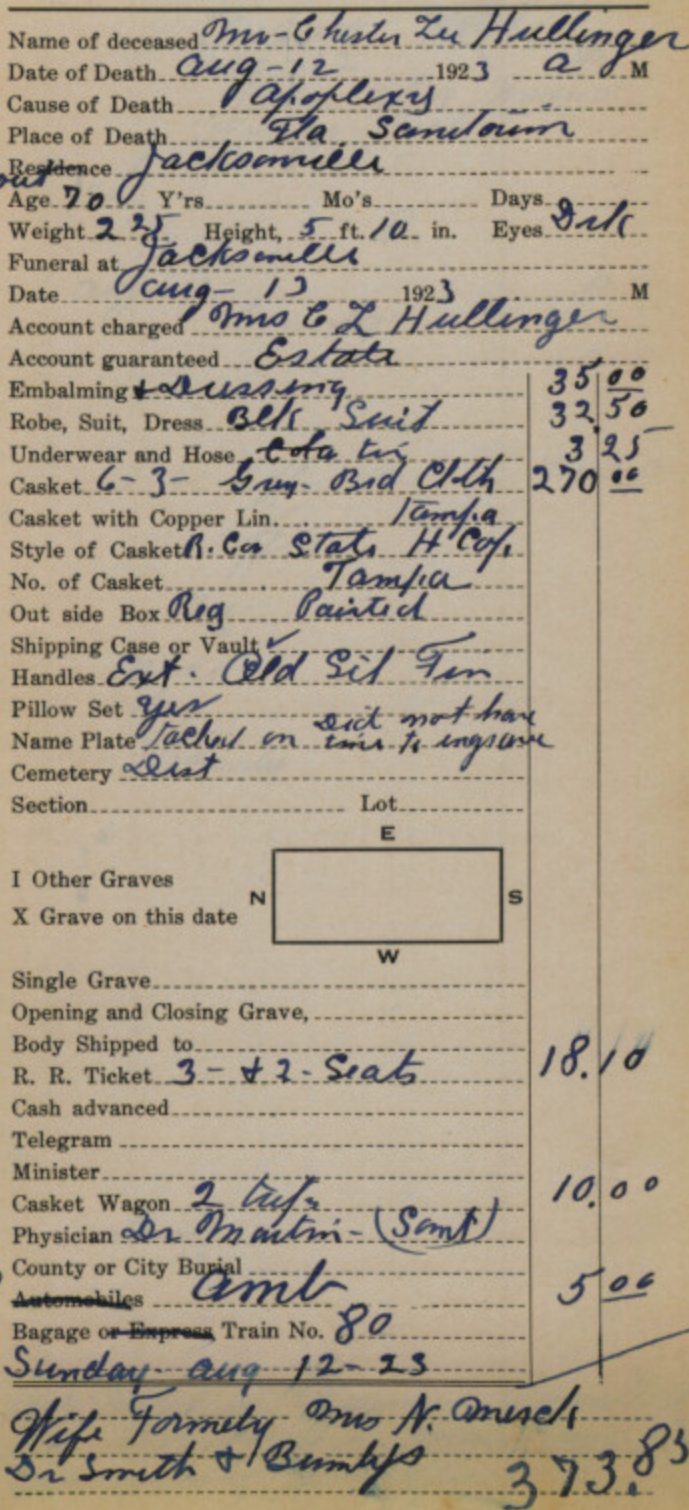 Name of deceased Mr- Chester Lee Hullinger
Date of Death Aug-12 1923 a M
Cause of Death Apoplexy
Place of Death Fla. Sanitorium
Residence Jacksonville
Age 70 Y'rs Mo's Days
Weight 225 Height, 5 ft. 10 in. Eyes Drk
Funeral at Jacksonville
Date Aug- 13 1923 M
Account charged Mrs C L Hullinger
Account guaranteed Estate
Embalming & Dressing 35 00
Robe, Suit, Dress Blk Suit 32.50
Underwear and Hose tie 3 25
Casket 6-3- Grey- Brd Cloth 270 00
Casket with Copper Lin. Tampa
Style of Casket R. Cor State H Cap.
No. of Casket Tampa
Out side Box Reg Painted
Shipping Case or Vault ✓
Handles Ext. Old Sil Fin
Pillow Set yes
Name Plate Tacked on Did not have time to engrave
Cemetery Dist
Section Lot
E
I Other Graves
N S
X Grave on this date
W
Single Grave
Opening and Closing Grave,
Body Shipped to
R. R. Ticket 3- & 2- Seats 18.10
Cash advanced
Telegram
Minister
Casket Wagon 2 trips 10.00
Physician Dr Martin- (Sant)
County or City Burial
Automobiles Amb 5 00
Bagage or Express Train No. 80
Sunday- Aug 12-23
Wife Formely Mrs N.
Dr Smith & 373.85